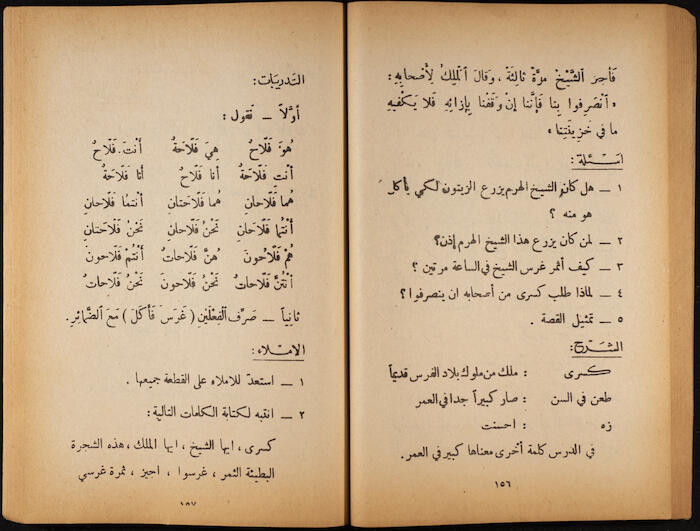 فَأُجيزَ الشَّيْخُ مَرَّةً ثالِثَةً ، وَقالَ الْمَلِكُ لِأَصْحابِهِ :
« اَنْصَرِفُوا بِنا فَإِنَّنا إِنْ وَقَفْنا بِإِزائِهِ فَلا يَكْفيهِ
ما في خَزينَتِنا »
اسئلة :
١ – هل كان الشيخ الهرم يزرع الزيتون لكي يأكل
هو منه ؟
٢ – لمن كان يزرع هذا الشيخ الهرم إذن؟
٣ – كيف أثمر غرس الشيخ في الساعة مرتين ؟
٤ – لماذا طلب كسرى من أصحابه ان ينصرفوا ؟
٥ – تمثيل القصة .
الشرح :
كسرى : ملك من ملوك بلاد الفرس قديماً
طعن في السن : صار كبيراً جدا في العمر
زه : احسنت
في الدرس كلمة أخرى معناها كبير في العمر.
١٥٦
التدريبات :
أوّلاً – نَقول :
هُوَ فَلّاحٌ هِيَ فَلّاحَةٌ أَنْتَ فَلّاحٌ
أَنْتِ فَلّاحَةٌ أَنا فَلّاحٌ أَنا فَلّاحَةٌ
هُما فَلّاحانِ هُما فَلّاحَتانِ أَنْتُما فَلّاحانِ
أَنْتُما فَلّاحَتانِ نَحْنُ فَلّاحانِ نَحْنُ فَلّاحَتانِ
هُمْ فَلّاحُونَ هُنَّ فَلّاحاتٌ أَنْتُمْ فَلّاحونَ
أَنْتُنَّ فَلّاحاتٌ نَحْنُ فَلّاحونَ نَحْنُ فَلّاحاتٌ
ثانِياً – صَرِّفِ الْفِعْلَيْنِ ( غَرَسَ فَأَكَلَ ) مَعَ الضَّمائِرِ.
الاملاء :
١ – استعدّ للاملاء على القطعة جميعها .
٢ – انتبه لكتابة الكلمات التالية :
كسرى ، ايها الشيخ ، ايها الملك ، هذه الشجرة
البطيئة الثمر ، غرسوا ، اجيز ، ثمرة غرسي